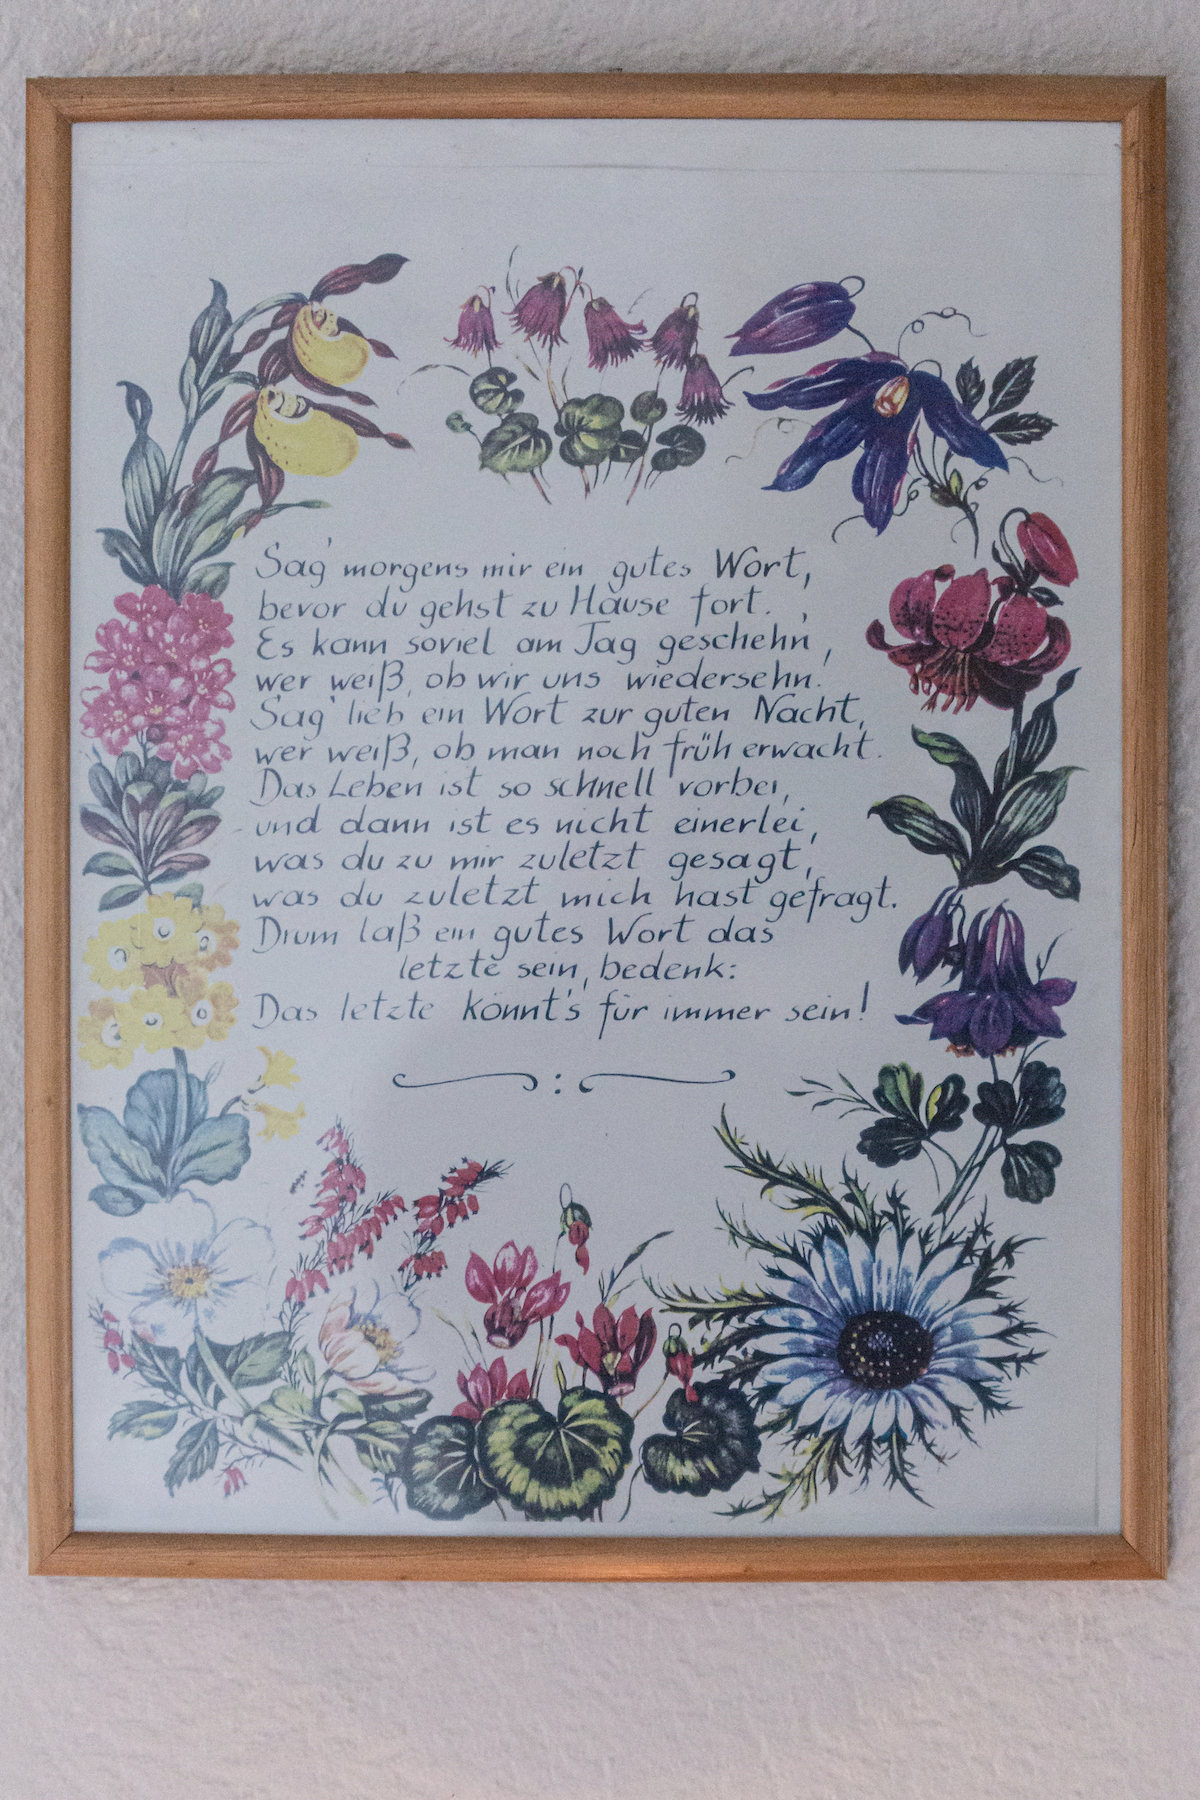 Sag' morgens mir ein gutes Wort,
bevor du gehst zu Hause fort.
Es kann soviel am Tag geschehn,
wer weiß, ob wir uns wiedersehn.
Sag' lieb ein Wort zur guten Nacht,
wer weiß, ob man noch früh erwacht.
Das Leben ist so schnell vorbei,
und dann ist es nicht einerlei,
was du zu mir zuletzt gesagt,
was du zuletzt mich hast gefragt.
Drum laß ein gutes Wort das
letzte sein, bedenk:
Das letzte könnt's für immer sein!